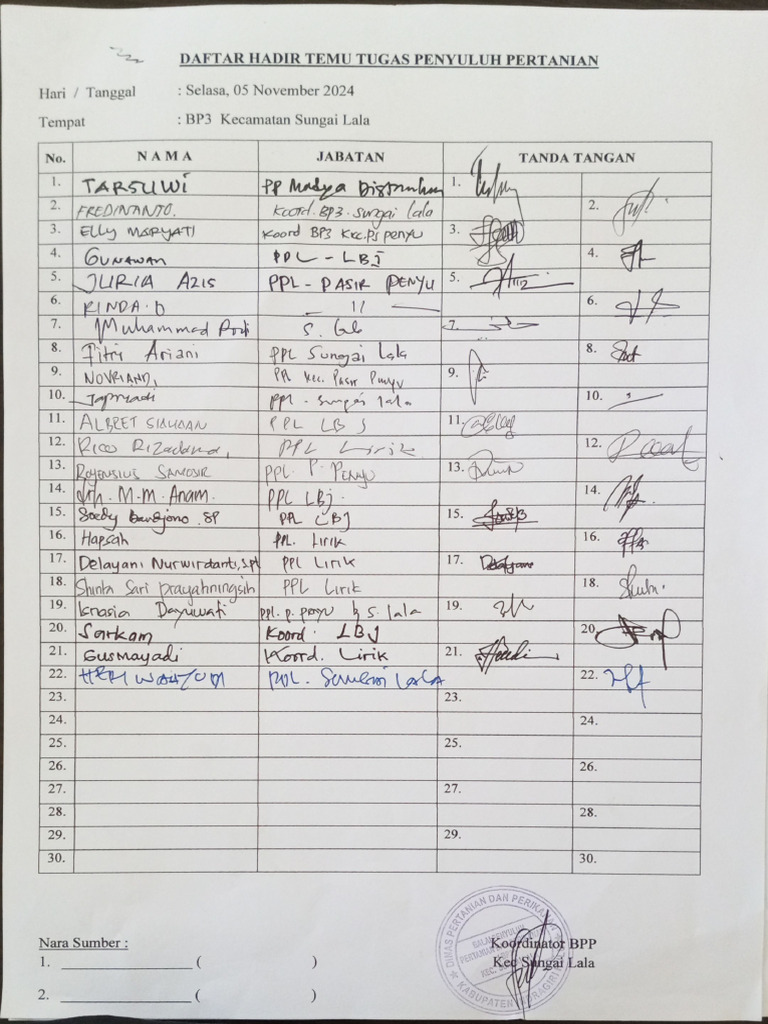 DAFTAR HADIR TEMU TUGAS PENYULUH PERTANIAN
Hari / Tanggal : Selasa, 05 November 2024
Tempat : BP3 Kecamatan Sungai Lala
No. NAMA JABATAN TANDA TANGAN
1. TARSUWI PP Madya 1.
2. FREDINANTO. Koord. BP3. Sungai lala 2.
3. Elly MARYATI Koord BP3 Kec. Ps penyu 3.
4. GUNAWAN PPL - LBJ 4.
5. JURIA AZIS PPL - PASIR PENYU 5.
6. RINDA. D — 11 — 6.
7. Muhammad 7.
8. Fitri Ariani PPL Sungai Lala 8.
9. NOVRIAND, Kec. Pasir Penyu 9.
10. PPL. Sungai lala 10.
11. ALBRET PPL LBJ 11.
12. Rico PPL Lirik 12.
13. SAMOSIR PPL. P. PENYU 13.
14. M.M. Anam. PPL LBj. 14.
15. SP PPL LBJ 15.
16. Hapsah PPL. Lirik 16.
17. Delayani Nurwirdanti, S.Pt PPL Lirik 17.
18. Shinta Sari prayahningsih PPL Lirik 18.
19. Dayuwati ppl. p. penyu S. lala 19.
20. Sarkam Koord. LBJ 20.
21. Gusmayadi Koord. Lirik 21.
22. HERI WAHYUDI PPL. SUNGAI LALA 22.
23. 23.
24. 24.
25. 25.
26. 26.
27. 27.
28. 28.
29. 29.
30. 30.
Nara Sumber :
1. ( )
2. ( )
Koordinator BPP
Kec Sungai Lala
DINAS PERTANIAN DAN PERIKANAN
BALAI PENYULUHAN
KABUPATEN INDRAGIRI